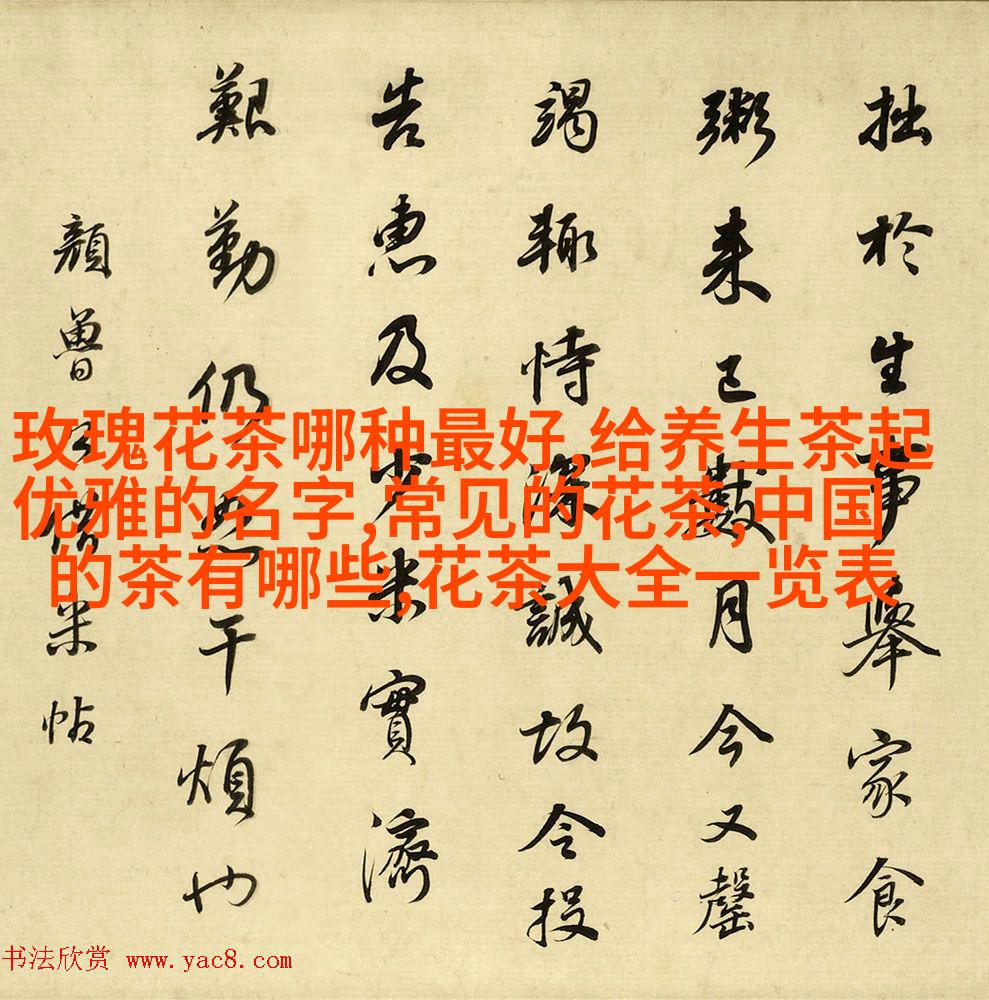 拙於生事舉家食
粥来已數月今又罄
竭輙恃深誠故令投
告惠及少米實濟
艱勤仍恕干煩也
顏魯公借米帖
玫瑰花茶哪种最好,给养生茶起
优雅的名字,常见的花茶,中国
的茶有哪些,花茶大全一览表
书法欣赏 www.yac8.com